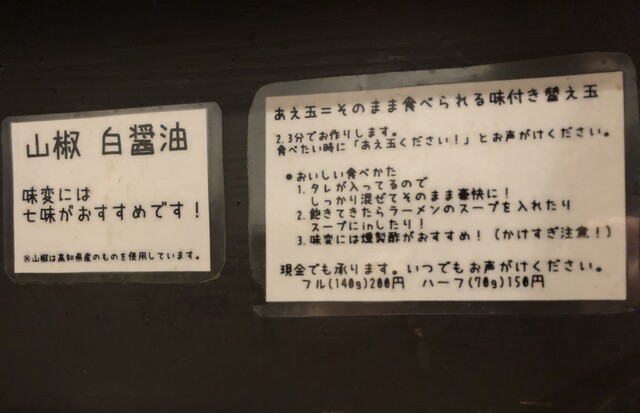 山椒 白醤油
味変には
七味がおすすめです！
※山椒は高知県産のものを使用しています。
あえ玉＝そのまま食べられる味付き替え玉
2,3分でお作りします。
食べたい時に「あえ玉ください！」とお声がけください。
●おいしい食べかた
1. タレが入ってるので
しっかり混ぜてそのまま豪快に！
2. 飽きてきたらラーメンのスープを入れたり
スープにinしたり！
3. 味変には燻製酢がおすすめ！（かけすぎ注意！）
現金でも承ります。いつでもお声がけください。
フル(140g)200円 ハーフ(70g)150円